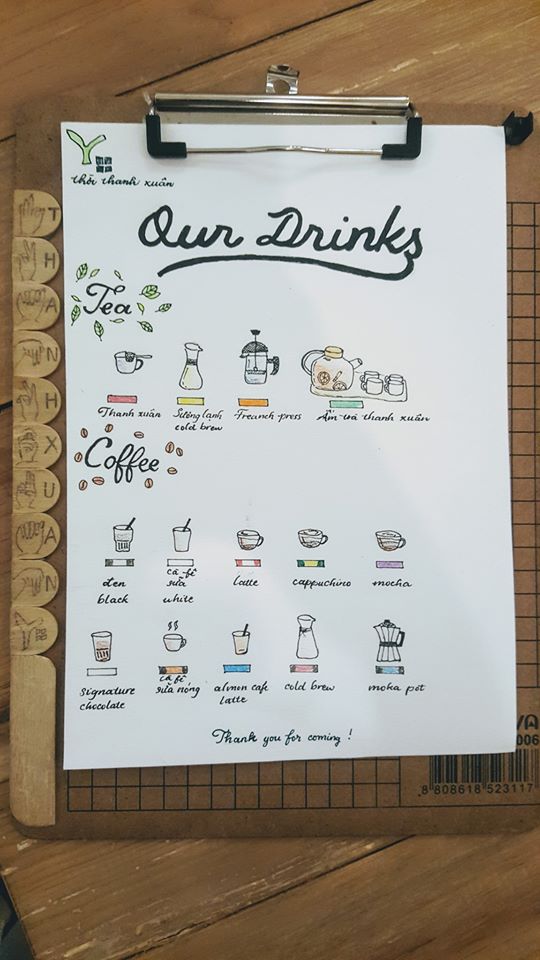 thời thanh xuân
Our Drinks
Tea
Thanh xuân
Sương lạnh
cold brew
Freanch press
Ấm trà thanh xuân
Coffee
đen
black
cà fê
sữa
white
latte
cappuchino
mocha
signature
chocolate
cà fê
sữa nóng
almon cafe
latte
cold brew
moka pot
Thank you for coming !
T
H
A
N
H
X
U
A
N
VA
006
8 808618 523117